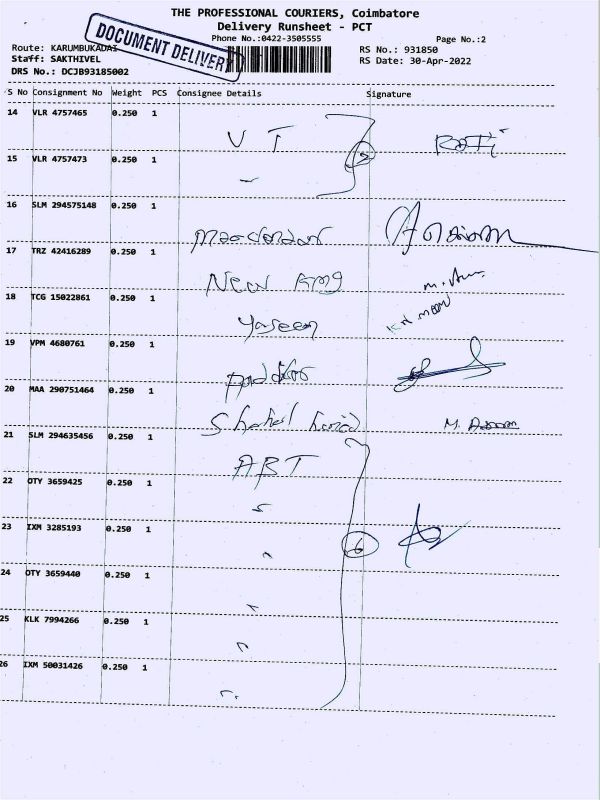 THE PROFESSIONAL COURIERS, Coimbatore
Delivery Runsheet - PCT
Phone No.:0422-3505555
Page No.:2
DOCUMENT DELIVERY
Route: KARUMBUKADAI
RS No.: 931850
Staff: SAKTHIVEL
RS Date: 30-Apr-2022
DRS No.: DCJB93185002
S No Consignment No Weight PCS Consignee Details Signature
14 VLR 4757465 0.250 1
V T
15 VLR 4757473 0.250 1
16 SLM 294575148 0.250 1
17 TRZ 42416289 0.250 1
New
18 TCG 15022861 0.250 1
Yaseen
19 VPM 4680761 0.250 1
20 MAA 290751464 0.250 1
21 SLM 294635456 0.250 1
ABT
22 OTY 3659425 0.250 1
23 IXM 3285193 0.250 1
6
24 OTY 3659440 0.250 1
25 KLK 7994266 0.250 1
26 IXM 50031426 0.250 1